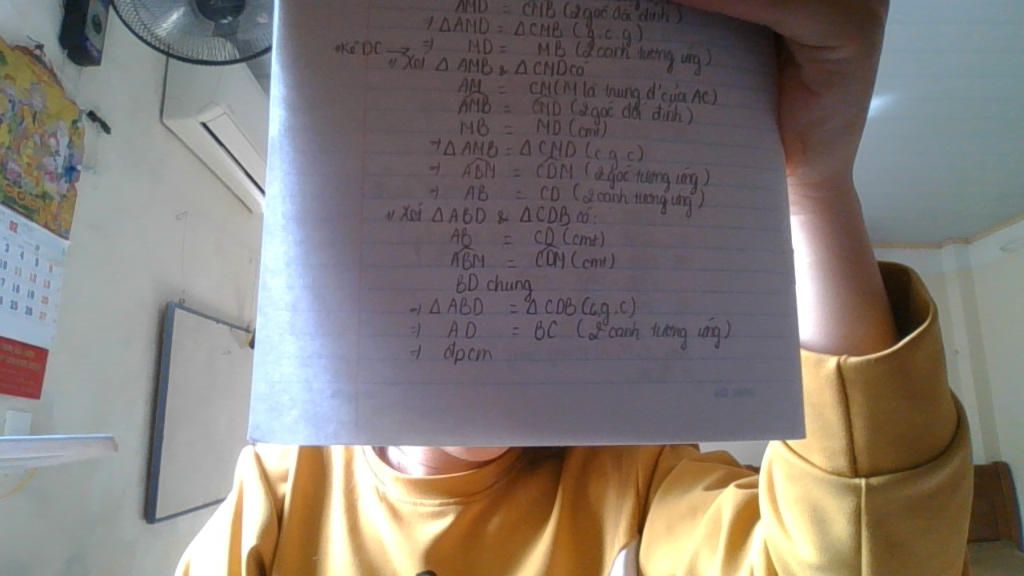 AMD = CMB (2 góc đối đỉnh)
⇒ △AMD = △CMB (g.c.g)
+Kẻ DC → ⇒ MD = MB (2 cạnh tương ứng)
+, Xét △AMB & △CMD có
AM = CM (M là trung đ' của AC)
AMB = CMD (2 góc đối đỉnh)
MB = MD (cmt)
⇒ △AMB = △CMD (c.g.c)
⇒ ABM = CDM (2 góc tương ứng)
⇒ AB = CD (2 cạnh tương ứng)
+, Xét △ABD & △CDB có:
AB = CD (cmt)
ABM = CDM (cmt)
BD chung
⇒ △ABD = △CDB (c.g.c)
⇒ AD = BC (2 cạnh tương ứng)
⇒ đpcm